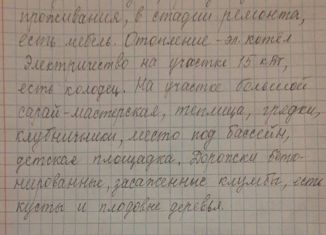 проживания, в стадии ремонта,
есть мебель. Отопление - эл. котел
Электричество на участке 15 кВт,
есть колодец. На участке большой
сарай-мастерская, теплица, грядки,
клубничники, место под бассейн,
детская площадка. Дорожки бето-
нированные, засаженные клумбы, есть
кусты и плодовые деревья.